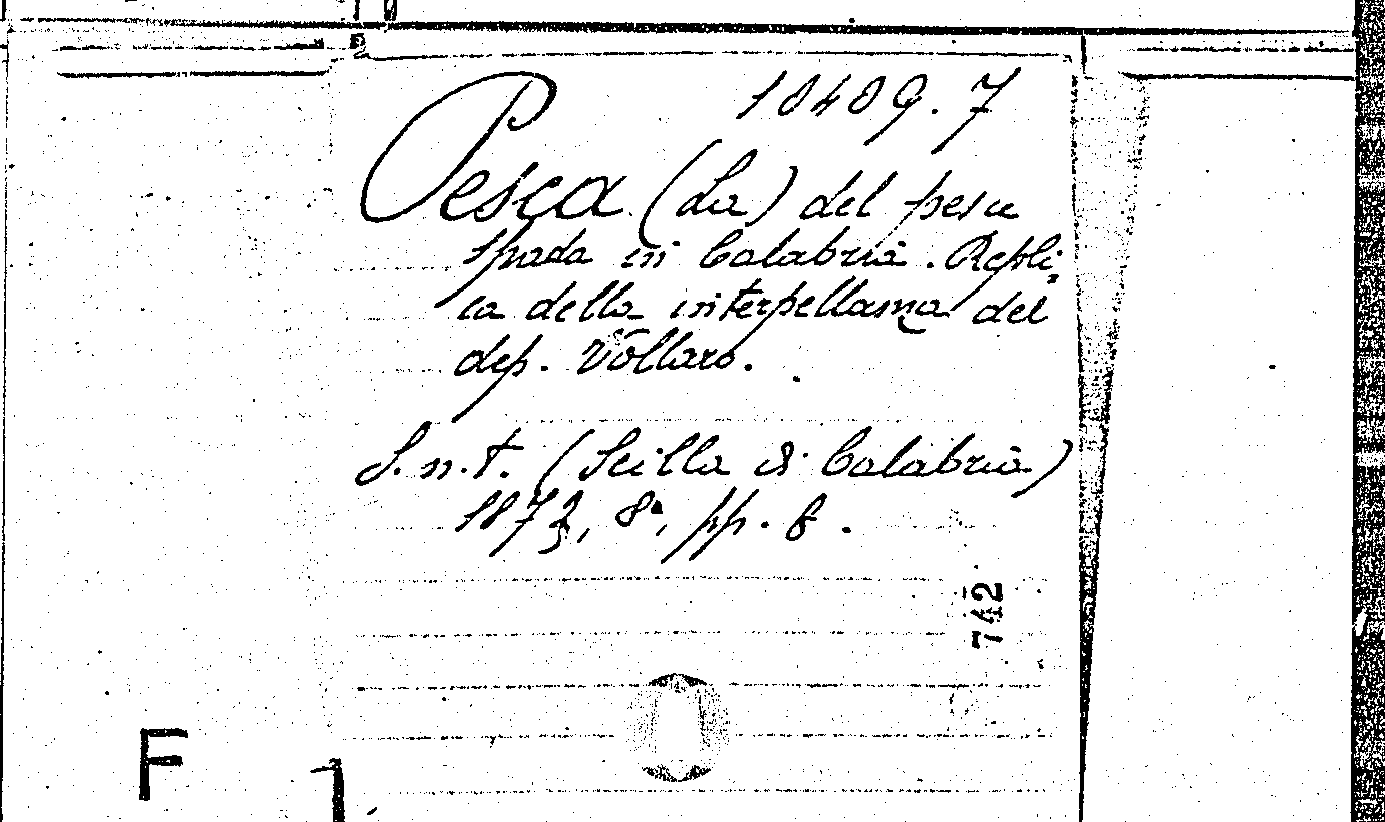 10409.7
Pesca (La) del pesce
spada in Calabria. Repli-
ca della interpellanza del
dep. Vollaro.
S. n. t. (Scilla di Calabria)
1873, 8°, pp. 8.
742
F